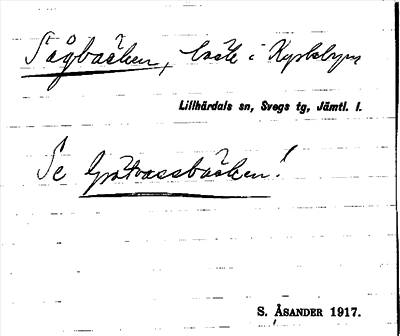 Sågbäcken, bäck i Kyrkbyn
Lillhärdals sn, Svegs tg, Jämtl. l.
Se Grötvassbäcken!
S. ÅSANDER 1917.